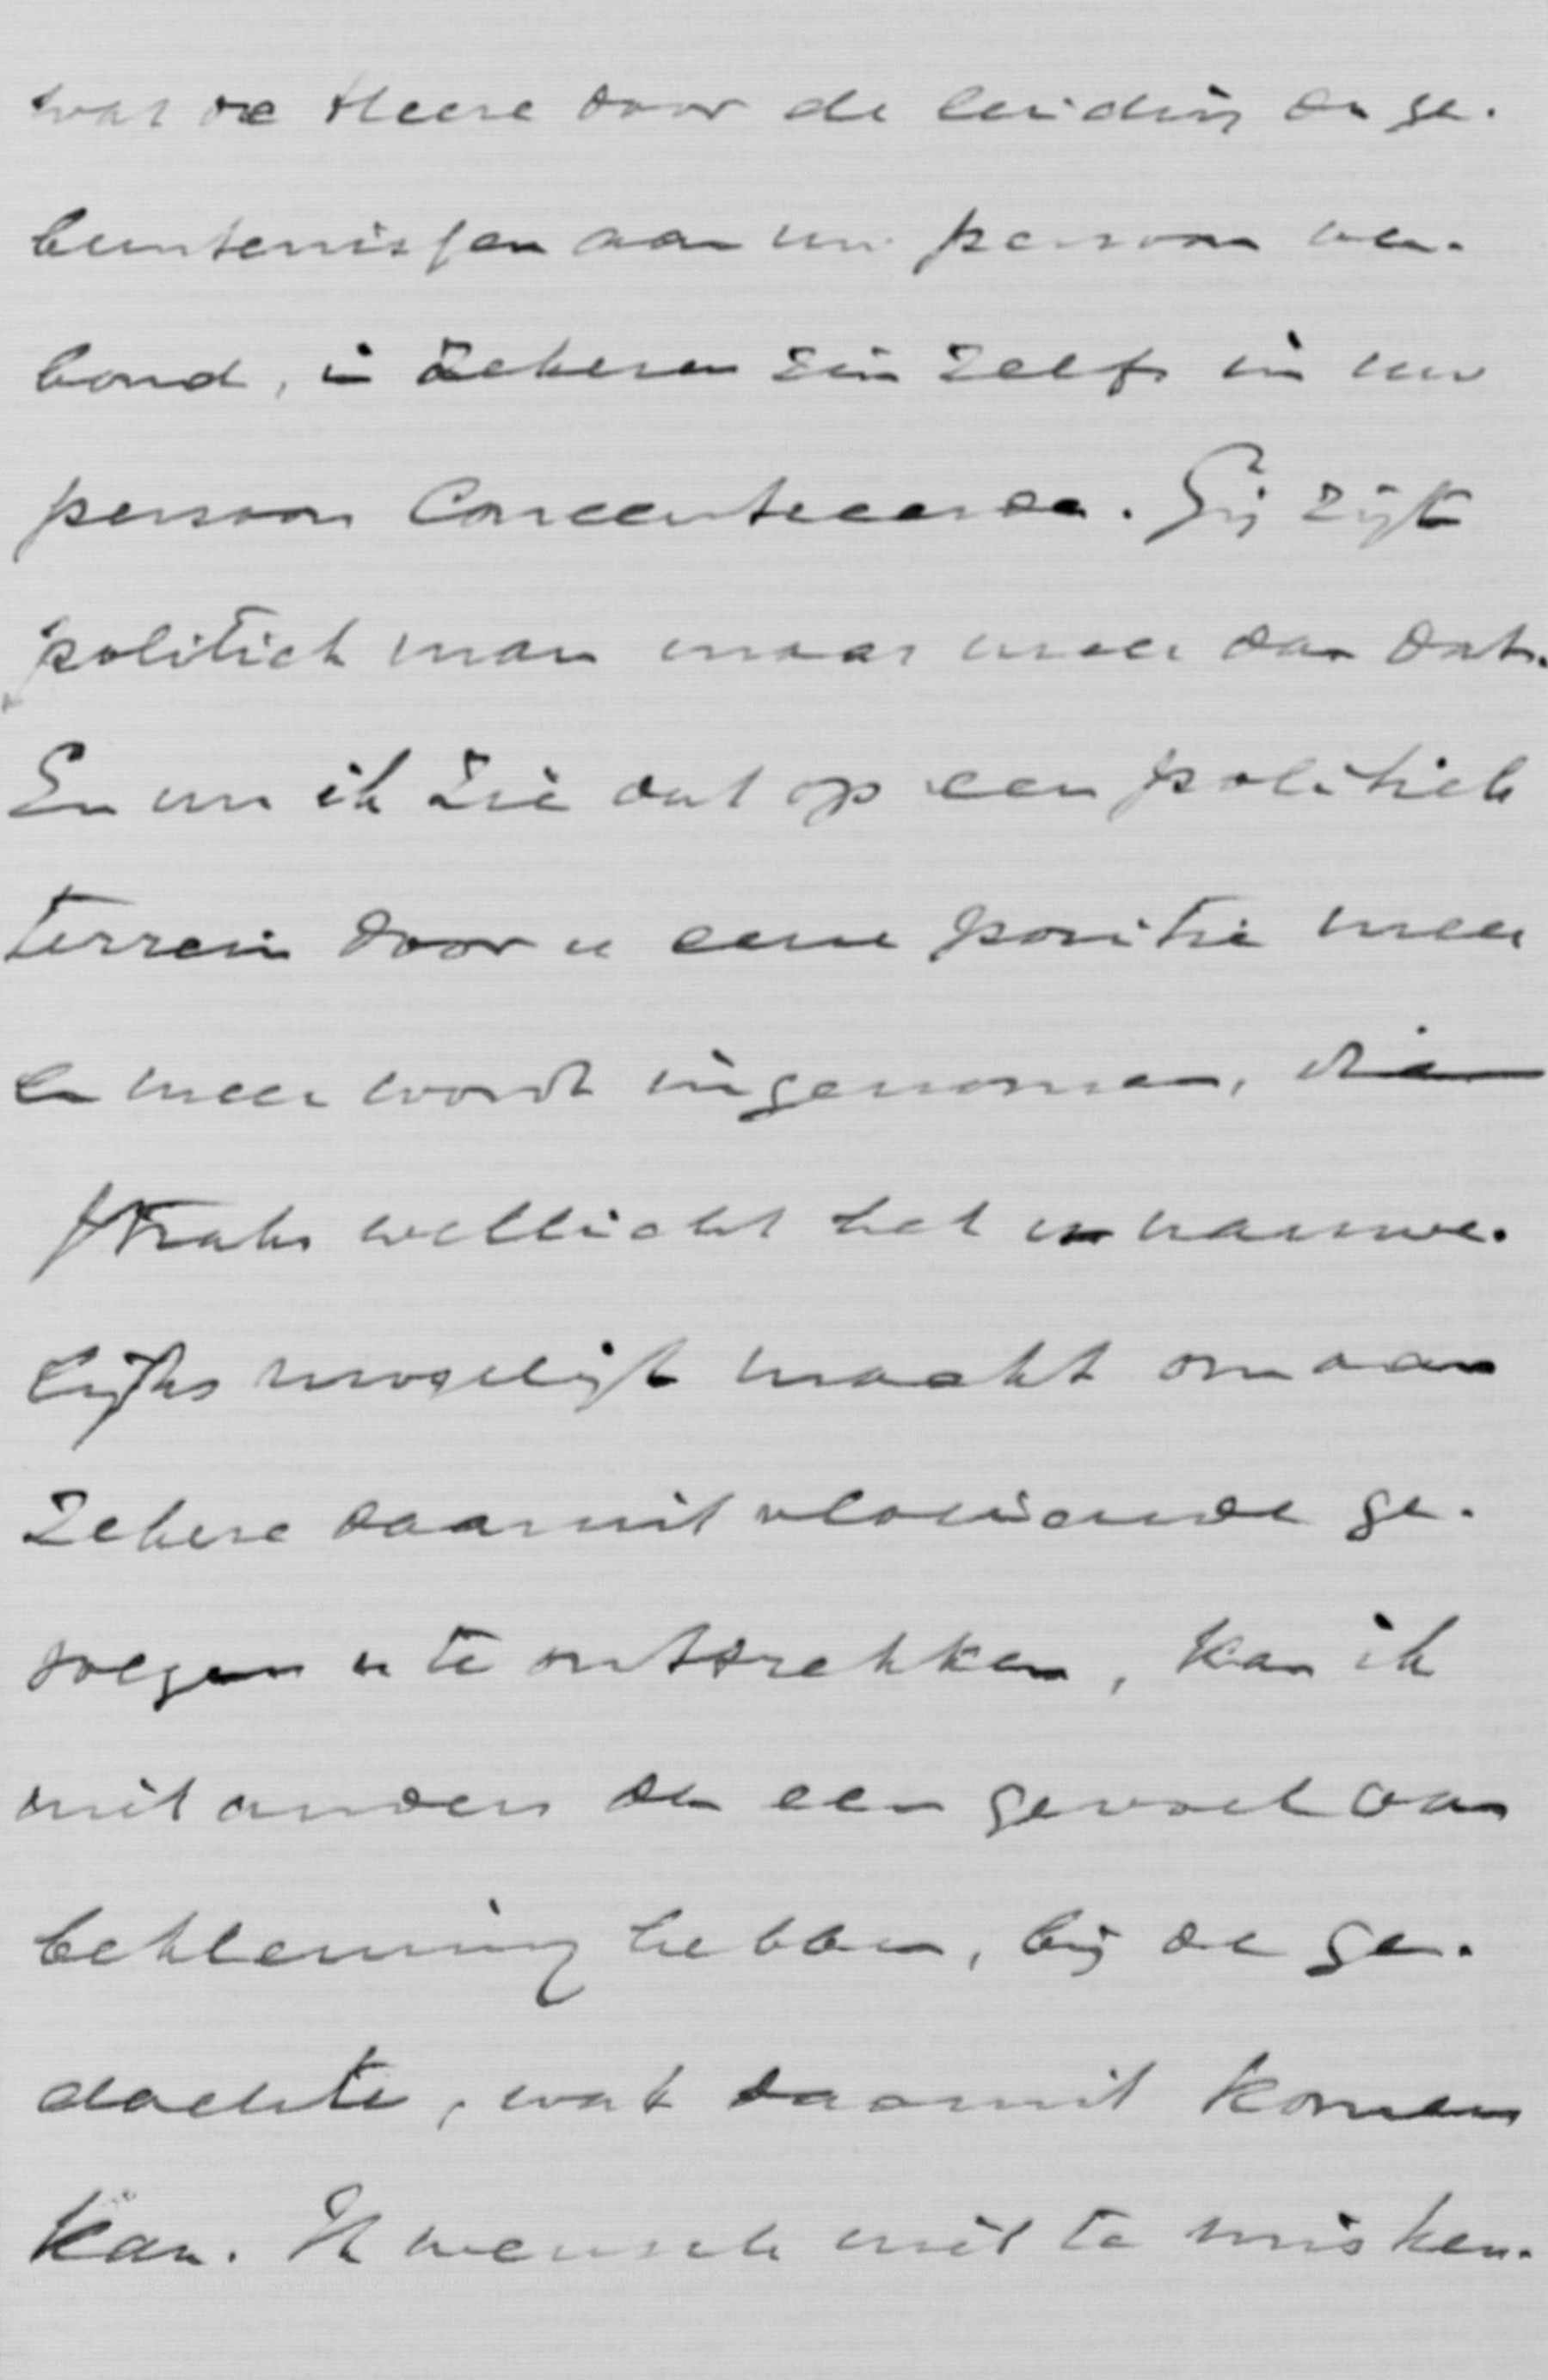 wat de Heere door de leiding der ge-
beurtenissen aan uw persoon ver-
bond, in zekeren zin zelfs in uw
persoon concentreerde. Gij zijt
politiek man maar meer dan dat.
En nu ik zie dat op een politiek
terrein door u eene positie meer
en meer wordt ingenomen, die
straks wellicht het u nauwe-
lijks mogelijk maakt om aan
zekere daaruit vloeiende ge-
volgen u te onttrekken, kan ik
niet anders dan een gevoel van
beklemming hebben, bij de ge-
dachte, wat daaruit komen
kan. Ik wensch niet te misken-